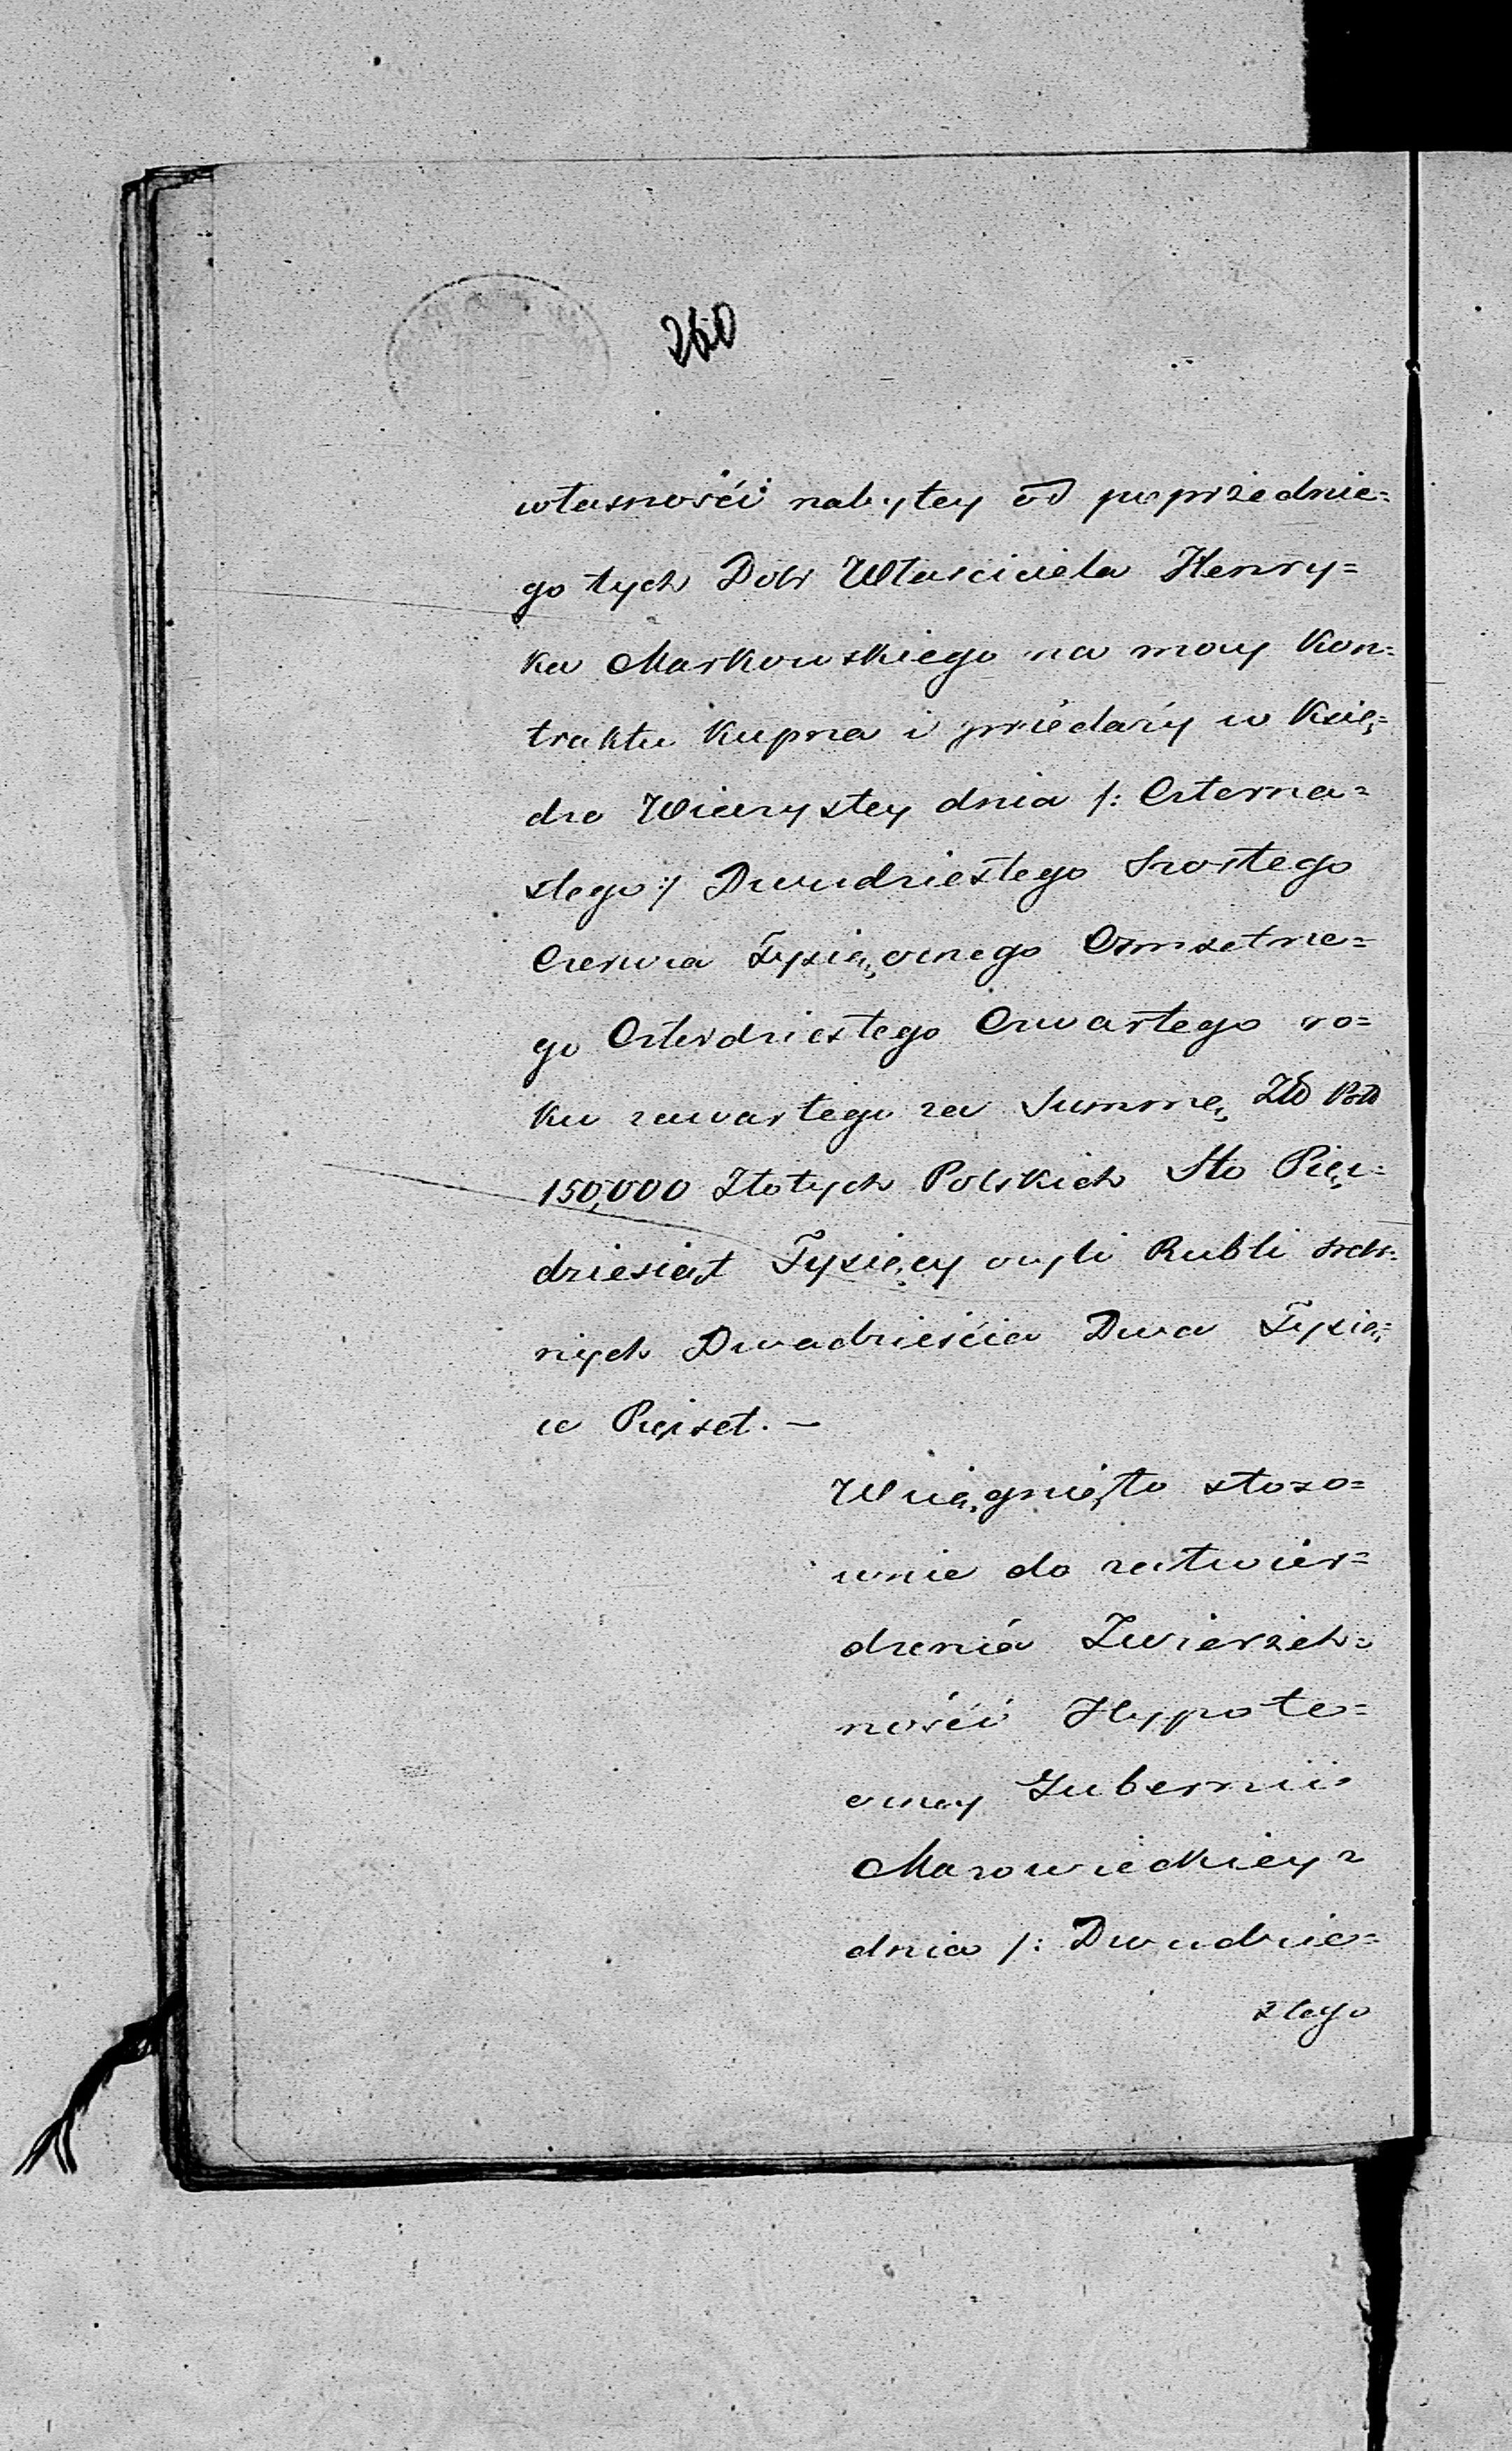 260
własności nabytey od poprzednie=
go tych Dobr Właściciela Henry=
ka Markowskiego na mocy Kon=
traktu Kupna i przedaży w Księ=
dze Wieczystey dnia /: Czterna=
stego :/ Dwudziestego Szostego
Czerwca Tysiącznego Osmsetne=
go Czterdziestego Czwartego ro=
ku zawartego za Summę Złł Poll
150,000 Złotych Polskich Sto Pięć=
dziesiąt Tysięcy czyli Rubli sreb=
nych Dwadzieścia Dwa Tysią=
ce Pięćset. —
Wciągnięto stoso=
wnie do zatwier=
dzenia Zwierzch=
ności Hypote=
czney Gubernii
Mazowieckiey z
dnia /: Dwudzie=
stego